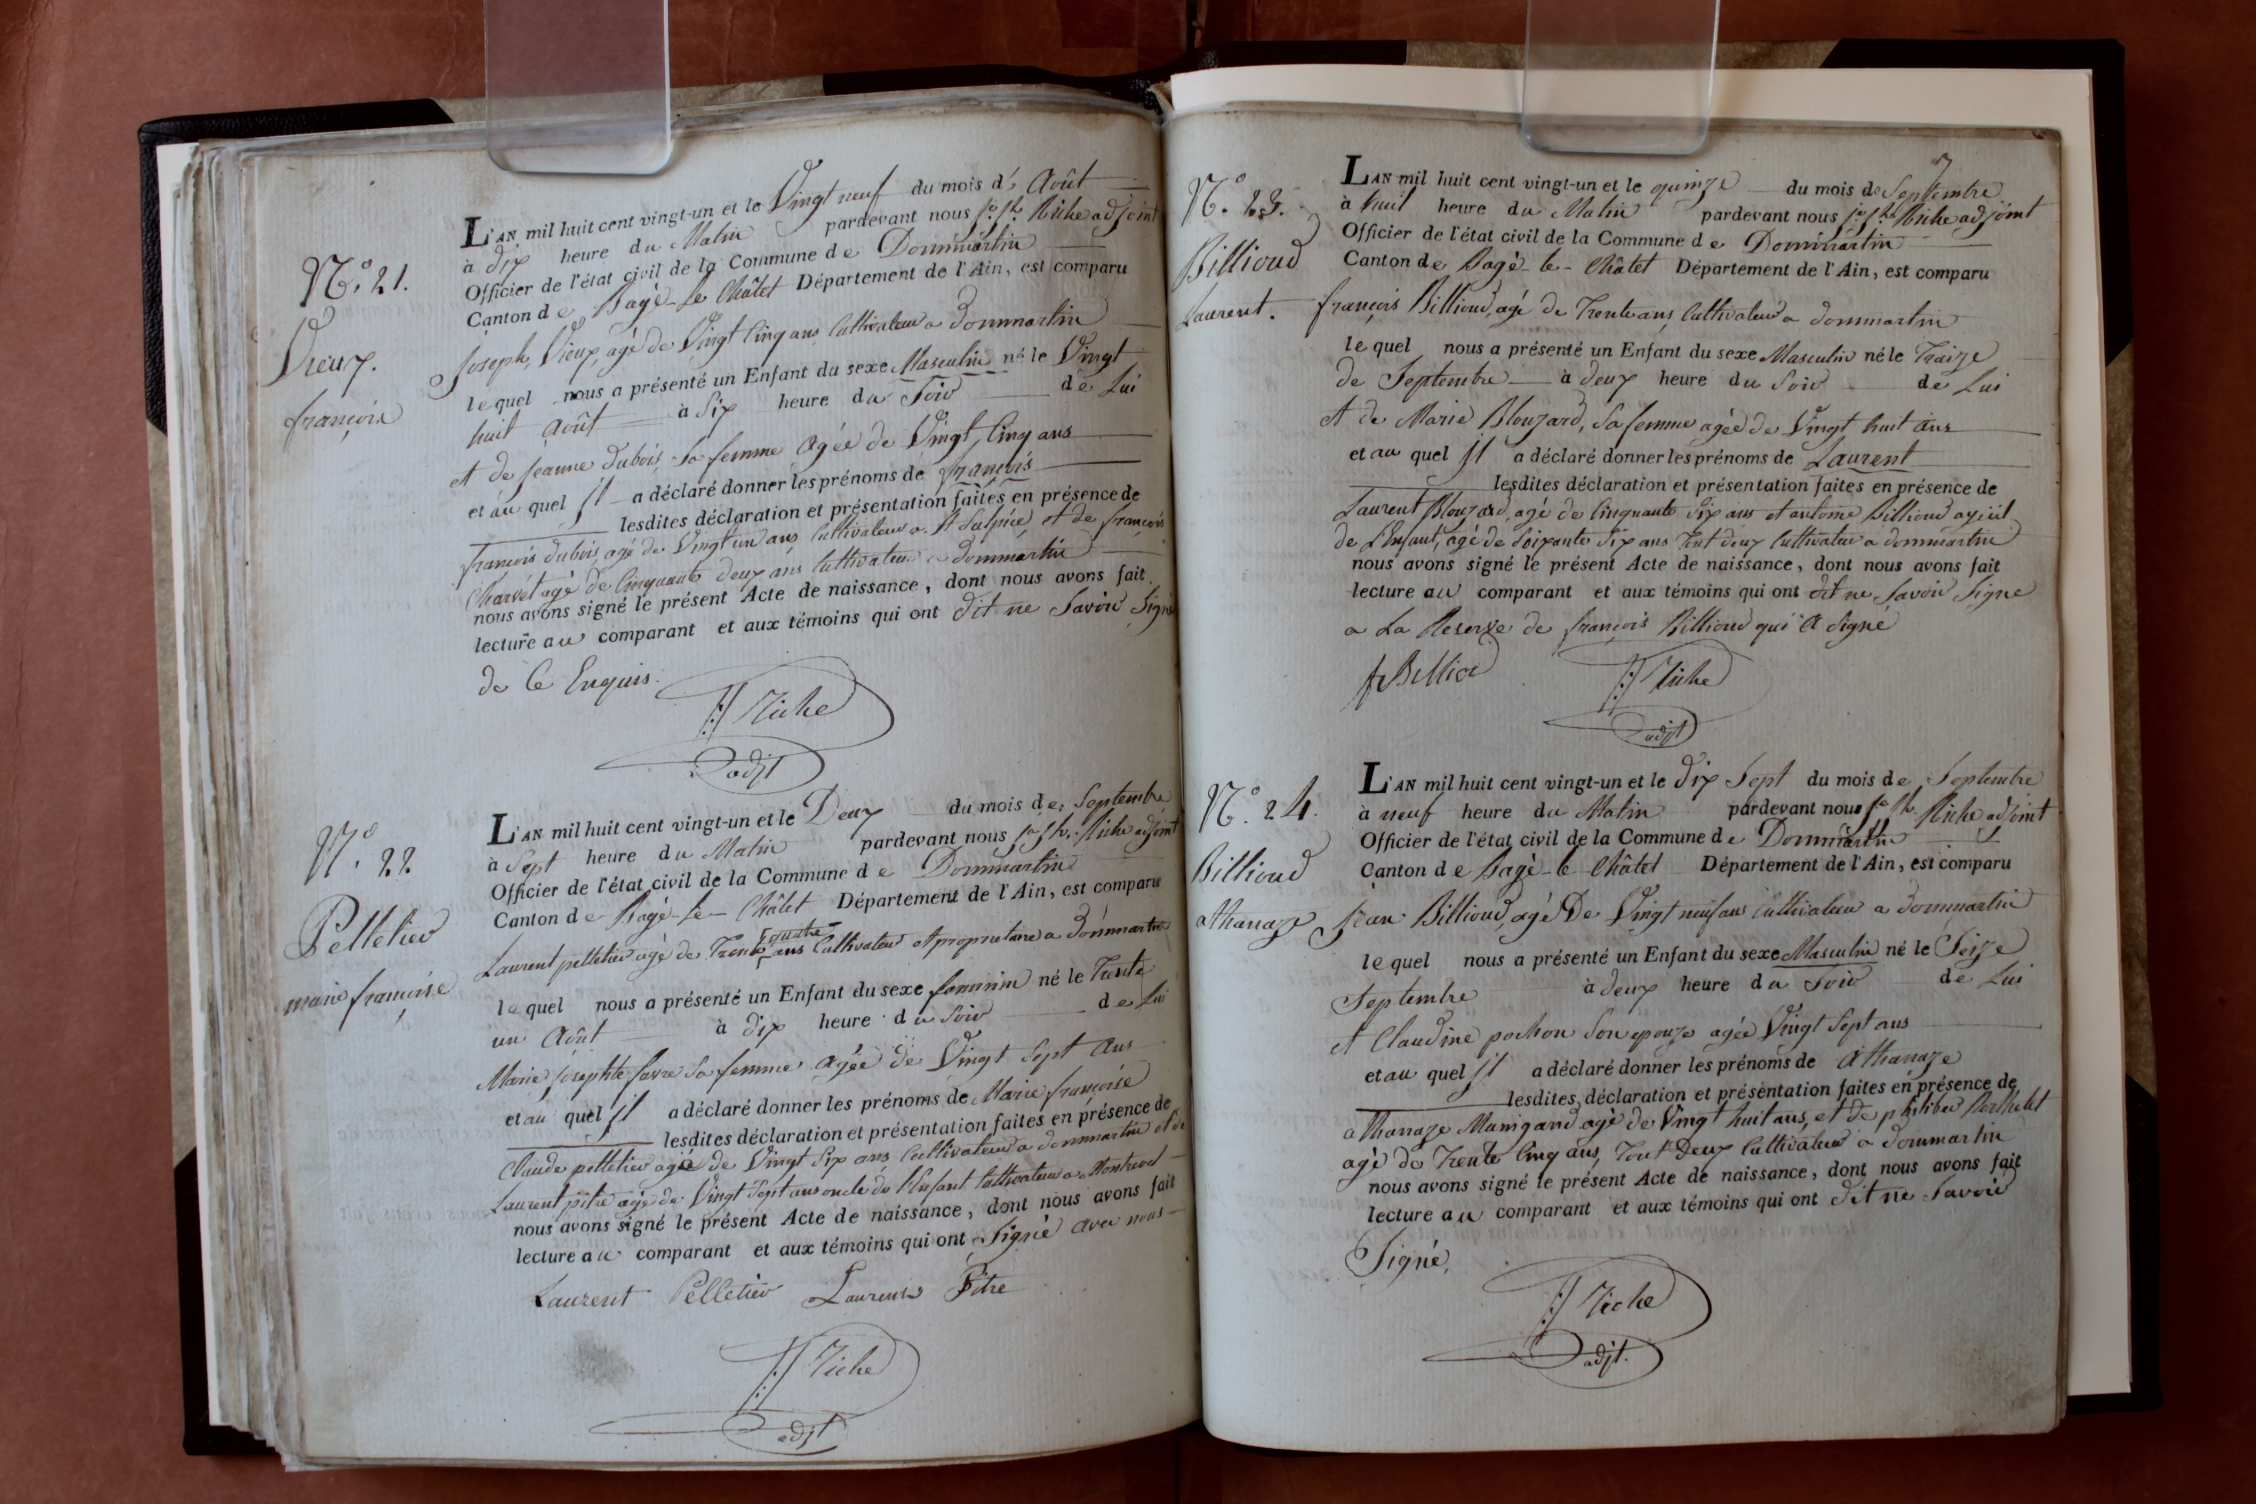 N.o 21.
Vieux.
françois
L'AN mil huit cent vingt-un et le Vingt neuf du mois de Août
à dix heure du Matin pardevant nous j.ph Riche adjoint
Officier de l'état civil de la Commune de Dommartin
Canton de Bagé-le Châtel Département de l'Ain, est comparu
Joseph Vieux, agé de Vingt Cinq ans Cultivateur a dommartin
lequel nous a présenté un Enfant du sexe Masculin né le Vingt
huit Août à Six heure du Soir de Lui
et de jeanne dubois, Sa femme Agée de Vingt Cinq ans
et au quel il a déclaré donner les prénoms de françois
lesdites déclaration et présentation faites en présence de
françois dubois, agé de Vingt un ans Cultivateur a St Sulpice, et de françois
Charvet agé de Cinquante deux ans Cultivateur a dommartin
nous avons signé le présent Acte de naissance, dont nous avons fait
lecture au comparant et aux témoins qui ont dit ne Savoir Signé
de Ce Enquis.
Riche
adjt
N.o 22
Pelletier
marie françoise
L'AN mil huit cent vingt-un et le Deux du mois de Septembre
à Sept heure du Matin pardevant nous j.ph Riche adjoint
Officier de l'état civil de la Commune de Dommartin
Canton de Bagé-le-Châtel Département de l'Ain, est comparu
quatre
Laurent pelletier agé de Trente ans Cultivateur et propriétaire a Dommartin
lequel nous a présenté un Enfant du sexe feminin né le Trente
un Août à dix heure du Soir de Lui
Marie josephte favre Sa femme Agée de Vingt Sept Ans
et au quel il a déclaré donner les prénoms de Marie françoise
lesdites déclaration et présentation faites en présence de
Claude pelletier agé de Vingt Six ans Cultivateur a dommartin et de
Laurent pitre agé de Vingt Sept ans oncle de l'Enfant Cultivateur a
nous avons signé le présent Acte de naissance, dont nous avons fait
lecture au comparant et aux témoins qui ont Signé avec nous
Laurent Pelletier Laurent Pitre
Riche
adjt
N.o 23.
Billioud
Laurent.
L'AN mil huit cent vingt-un et le quinze du mois de Septembre
à huit heure du Matin pardevant nous j.ph Riche adjoint
Officier de l'état civil de la Commune de Dommartin
Canton de Bagé-le-Châtel Département de l'Ain, est comparu
françois Billioud, agé de Trente ans, Cultivateur a dommartin
lequel nous a présenté un Enfant du sexe Masculin né le Traize
de Septembre à deux heure du Soir de Lui
et de Marie Blouzard, Sa femme agée de Vingt huit ans
et au quel il a déclaré donner les prénoms de Laurent
lesdites déclaration et présentation faites en présence de
Laurent Blouzard, agé de Cinquante Six ans et antoine Billioud ayeul
de l'Enfant, agé de Soixante Six ans Tout deux Cultivateur a dommartin
nous avons signé le présent Acte de naissance, dont nous avons fait
lecture au comparant et aux témoins qui ont dit ne Savoir Signe
a La Reserve de françois Billioud qui A Signé
f Billiod
Riche
adjt
N.o 24.
Billioud
athanaze
L'AN mil huit cent vingt-un et le dix Sept du mois de Septembre
à neuf heure du Matin pardevant nous j.ph Riche adjoint
Officier de l'état civil de la Commune de Dommartin
Canton de Bagé-le Châtel Département de l'Ain, est comparu
jean Billioud, agé De Vingt neuf ans Cultivateur a dommartin
lequel nous a présenté un Enfant du sexe Masculin né le Seize
Septembre à deux heure du Soir de Lui
et Claudine pochon Son epouze agée Vingt Sept ans
et au quel il a déclaré donner les prénoms de Athanaze
lesdites déclaration et présentation faites en présence de
athanaze Manigand agé de Vingt huit ans, et de philiber Berthelet
agé de Trente Cinq ans, Tout Deux Cultivateur a dommartin
nous avons signé le présent Acte de naissance, dont nous avons fait
lecture au comparant et aux témoins qui ont dit ne Savoir
Signé.
Riche
adjt.